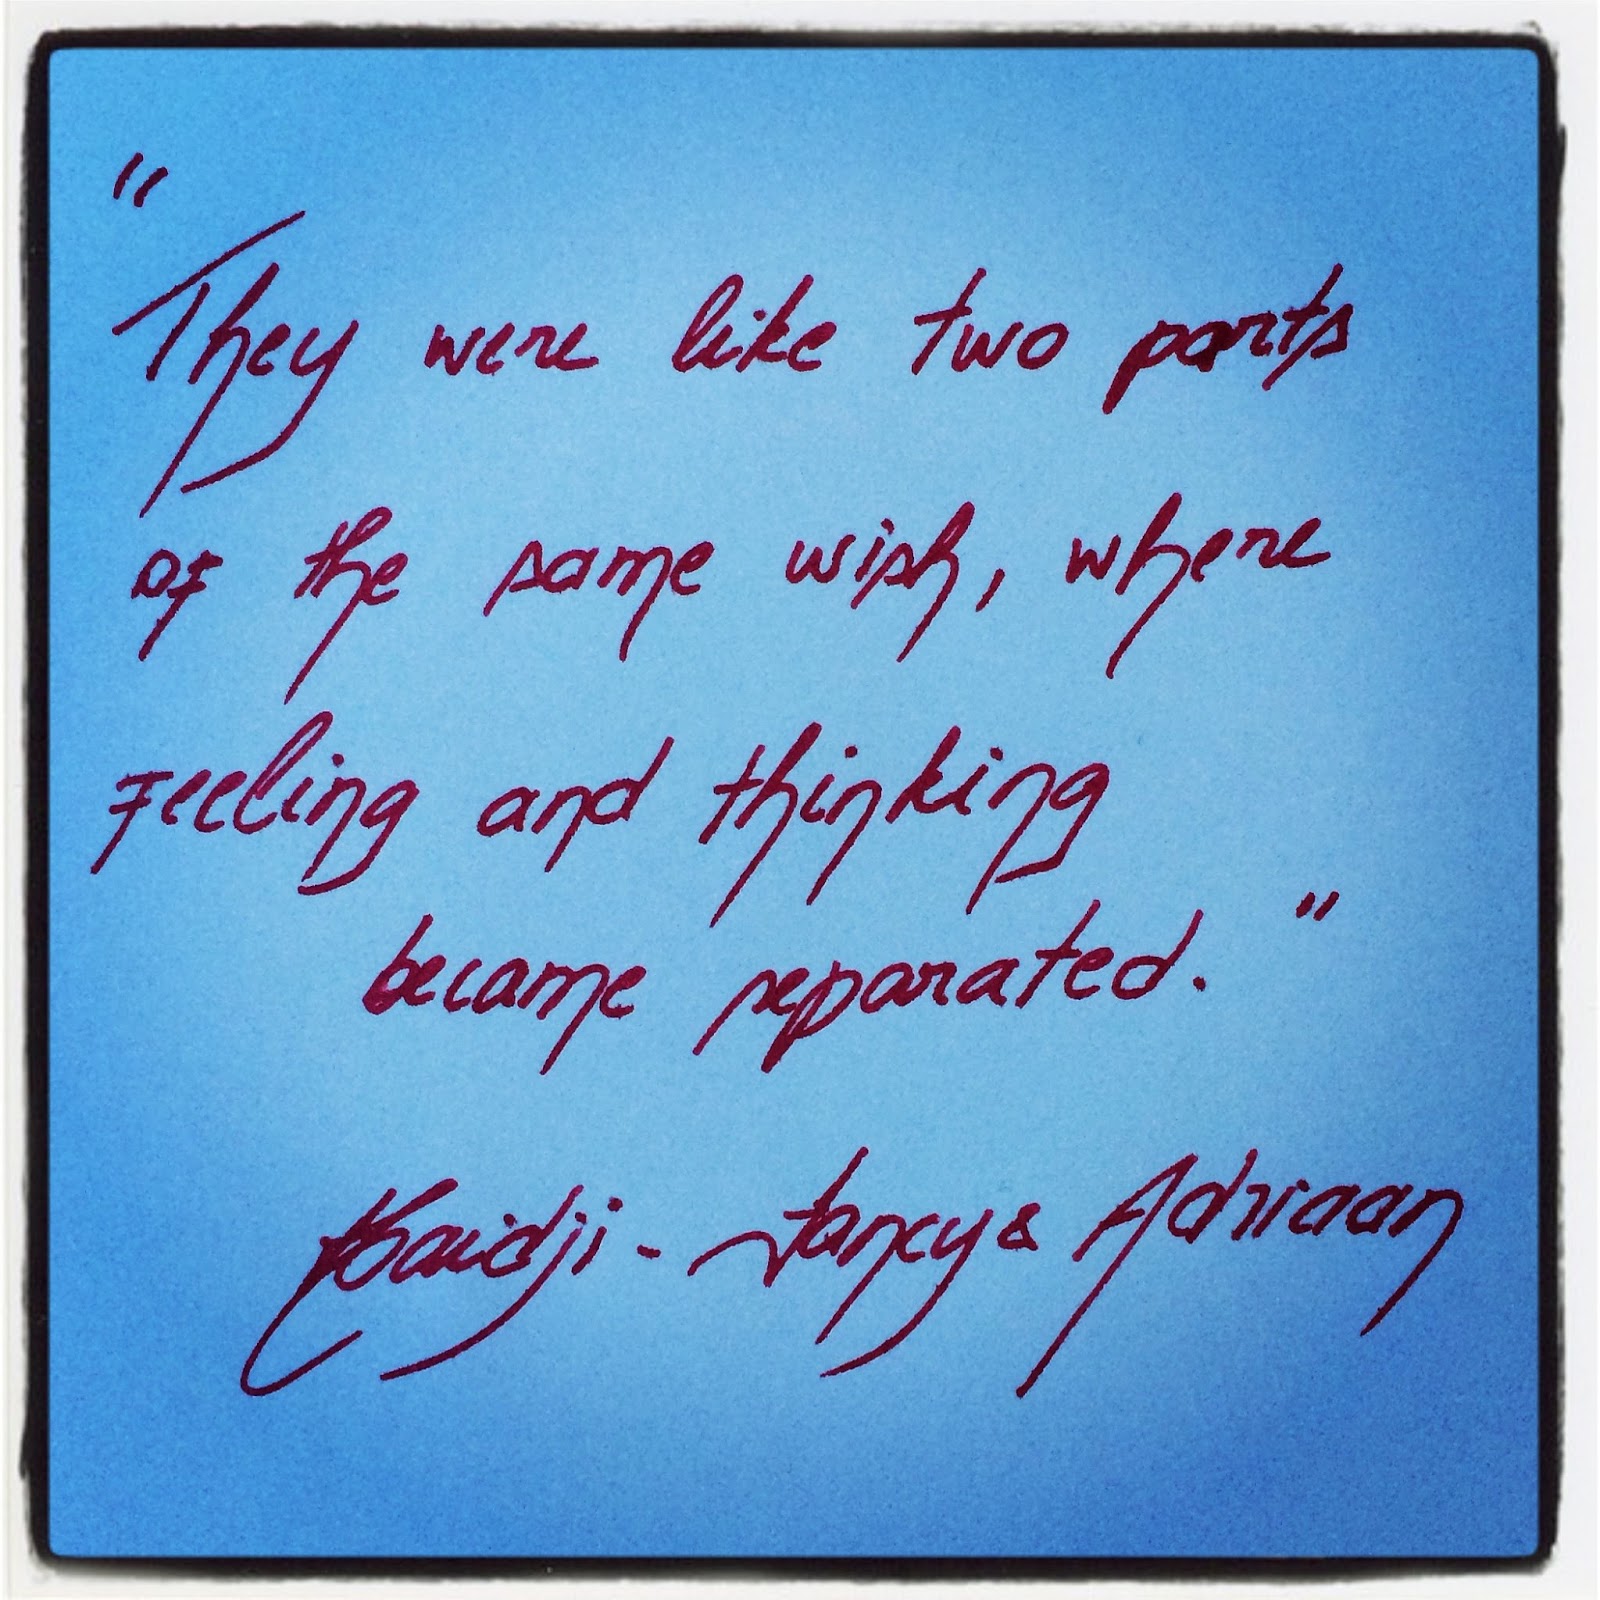 "They were like two parts
of the same wish, where
feeling and thinking
became separated."
- Jancy & Adriaan